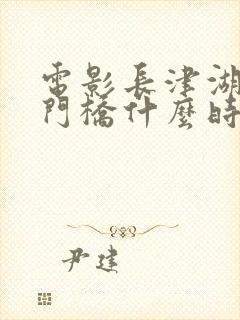 電影長津湖
門橋什麼時
尹建